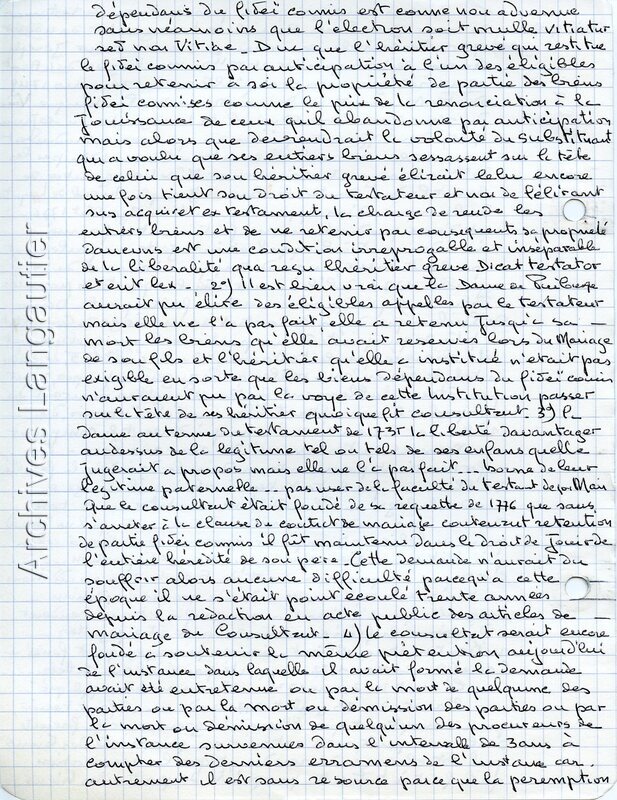 dépendans du fideï commis est comme non advenue
sans néamoins que l'élection soit nulle vitiatur
sed non vitiae - Du que l'héritier grevé qui restitue
le fidei commis par anticipation à l'un des éligibles
pour retenir à soi la propriété de partie des biens
fidei comises comme le prix de la renonciation à la
jouissance de ceux qu'il abandonne par anticipation
mais alors que deviendrait la volonté du substituant
qui a voulu que ses entiers biens sessassent sur la tête
de celui que son héritier grevé élirait lelu encore
une fois tient son droit du testateur et non de l'élisant
sus acquiret ex testament, la charge de rende les
entiers biens et de ne retenir par consequents sa propriété
d'aucuns est une condition irreprogable et inséparable
de la liberalité qua reçu lhéritier grevé Dicat testator
et erit lex - 2°) Il est bien vrai que la Dame de Puiberge
aurait pu élire des éligibles appellés par le testateur
mais elle ne l'a pas fait, elle a retenu jusqu'à sa -
mort les biens qu'elle avait reservés lors du Mariage
de son fils et l'héritier qu'elle a institué n'était pas
exigible en sorte que les biens dépendans du fideï comis
n'auraient pu par la voye de cette Institution passer
sur la tête de ses héritier quoique fit consultent - 3°) la
dame au terme du testament de 1735 la liberté davantager
au dessus de la legitime tel ou tels de ses enfans quelle
jugerait a propos mais elle ne l'a pas fait ... borne de leur
légitime paternelle ... pas user de la faculté du testant de son Mari
Que le consultent était fondé de sa requette de 1776 que sans
s'arreter à la clause du contrat de mariage contenent retention
de partie fidei commis il fût maintenu dans le droit de jouir de
l'entière hérédité de son pere - Cette demande n'aurait du
souffrir alors aucune difficulté parcequ'a cette
époque il ne s'était point écoulé trente années
depuis la redaction en acte public des articles de -
mariage du Consultent - 4) le consultat serait encore
fondé a soutenir la même prétention aujourd'hui
de l'instance dans laquelle il avait formé la demande
avait été entretenue ou par la mort de quelqunne des
parties ou par la mort ou démission des parties ou par
la mort ou démission de quelqu'un des procureurs de
l'instance survenues dans l'intervale de 3 ans à
compter des derniers erramens de l'instance car.
autrement il est sans resource parce que la peremption
Archives Langautier